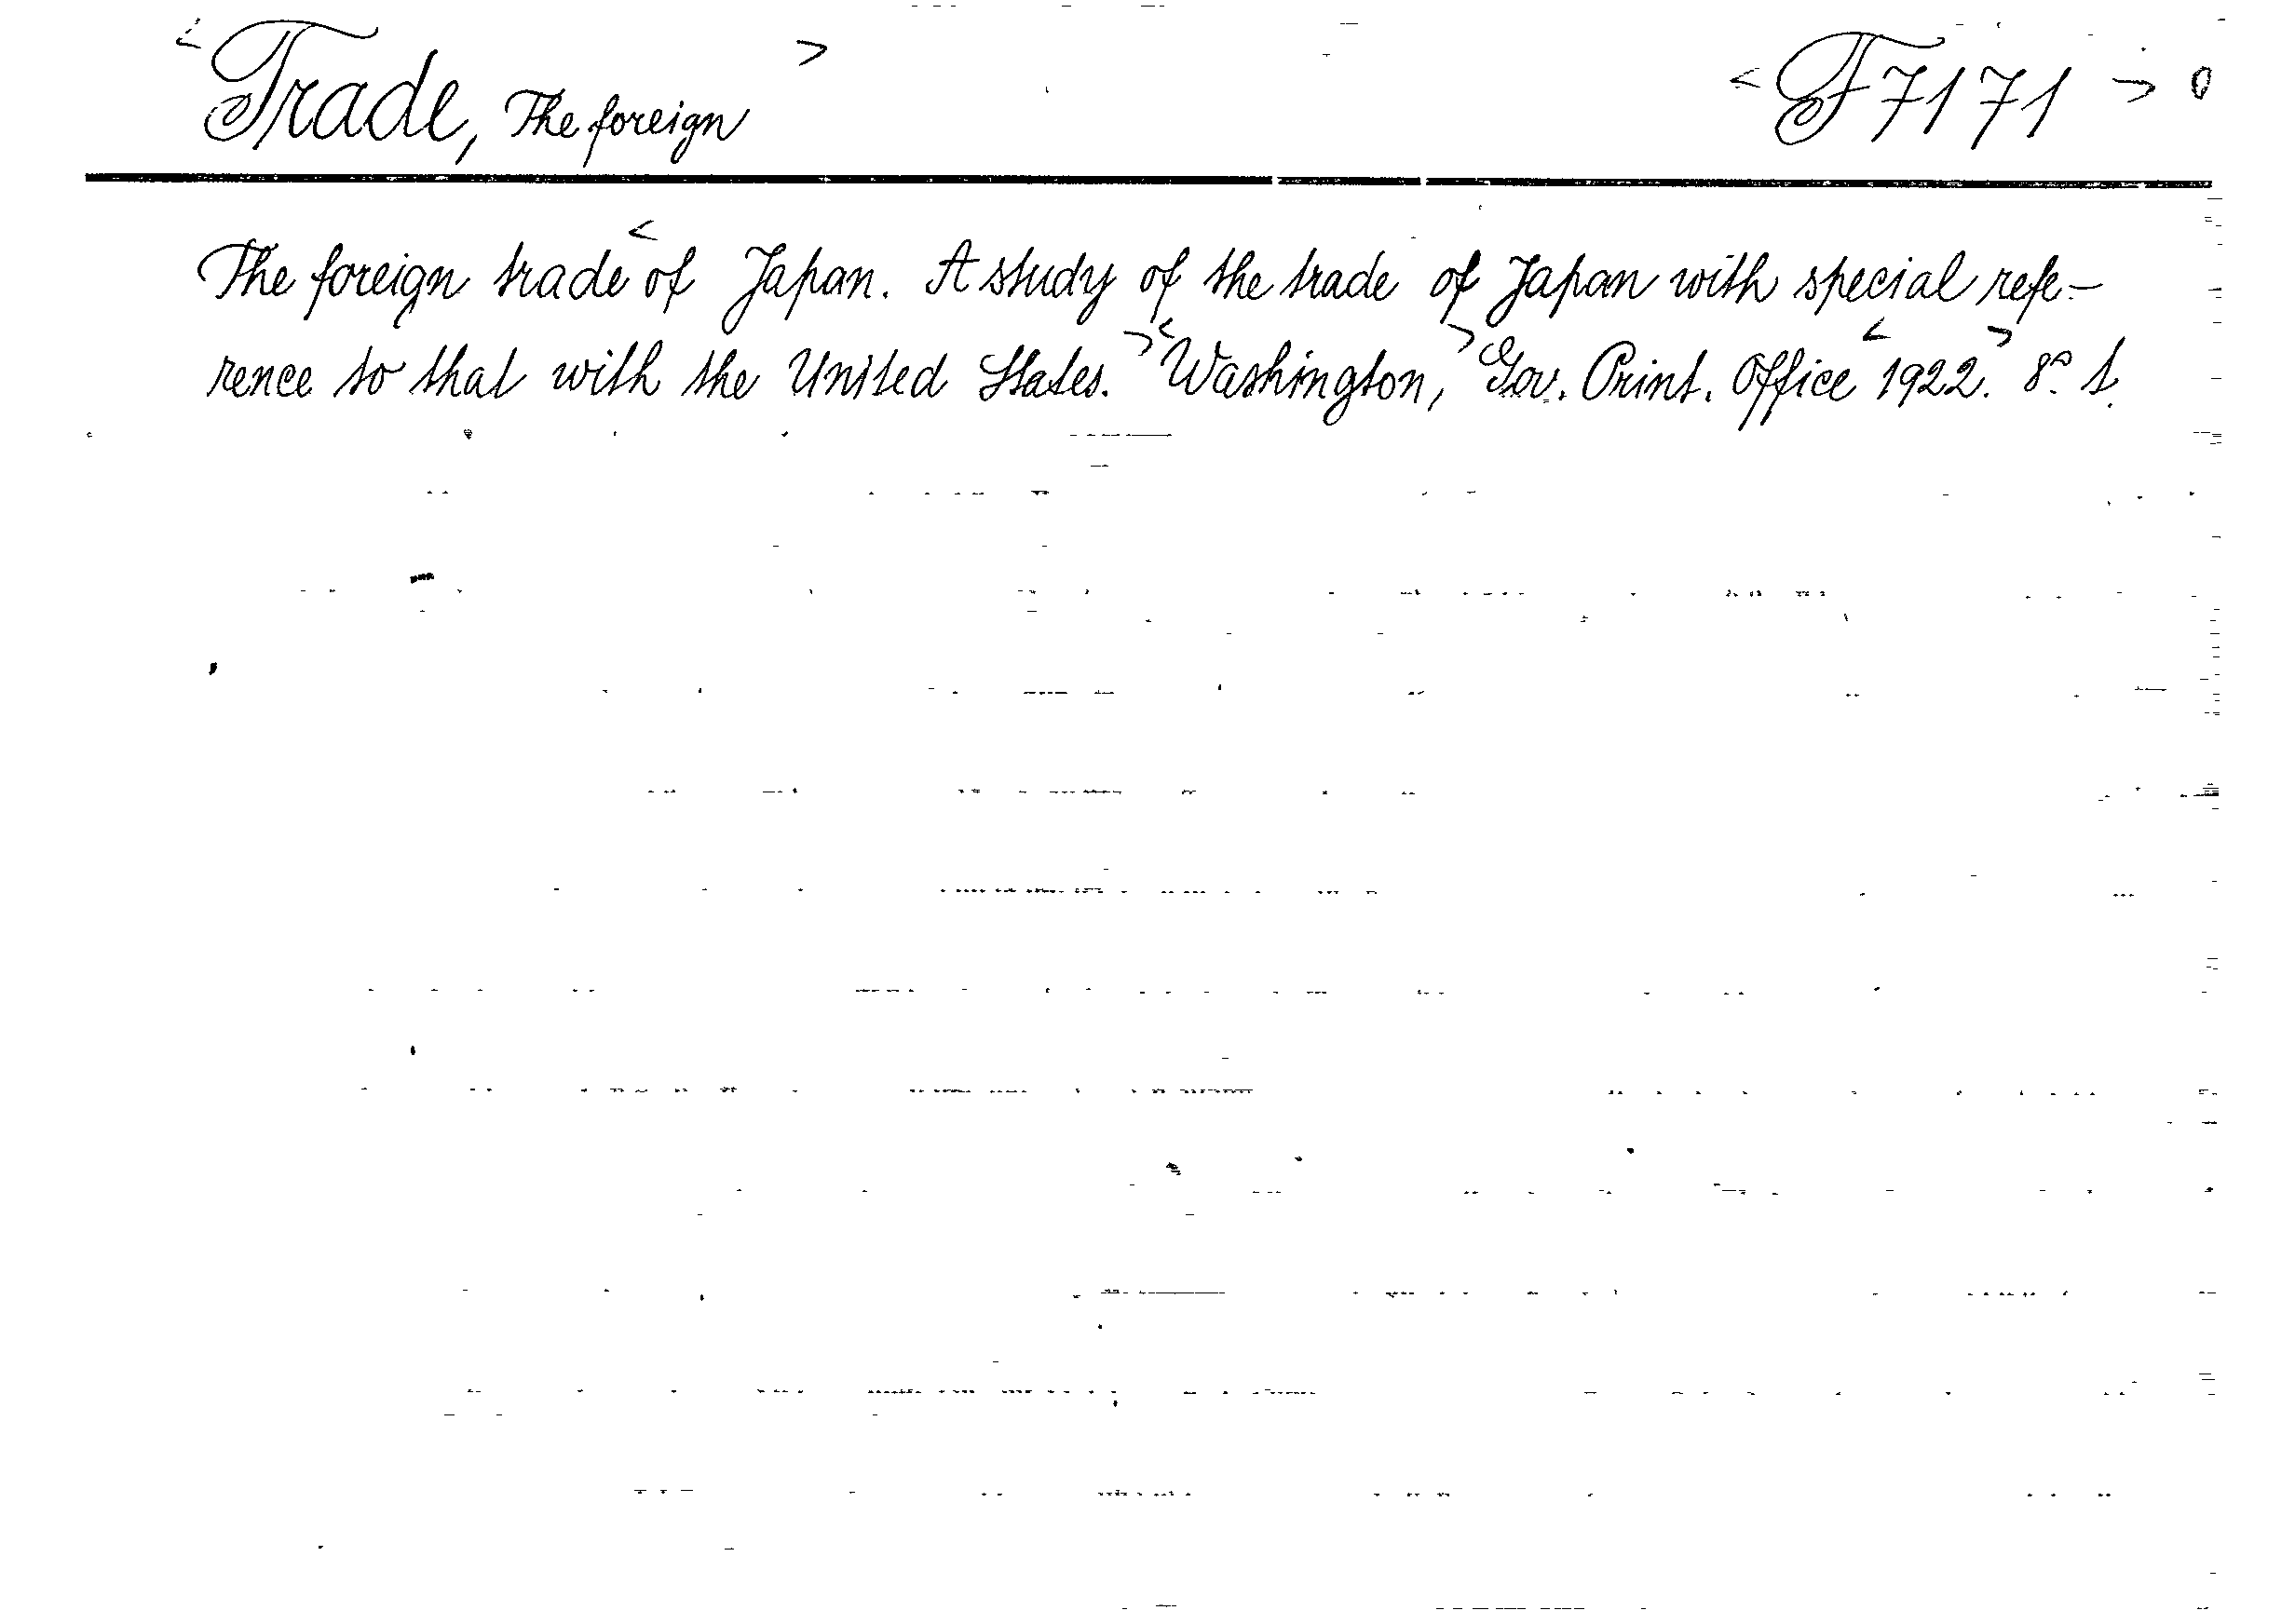 < Trade, The foreign > < F7171 > 0
The foreign trade < of Japan. A study of the trade of Japan with special refe-
rence to that with the United States. > < Washington, > Gov. Print. Office < 1922. > 8° 1.